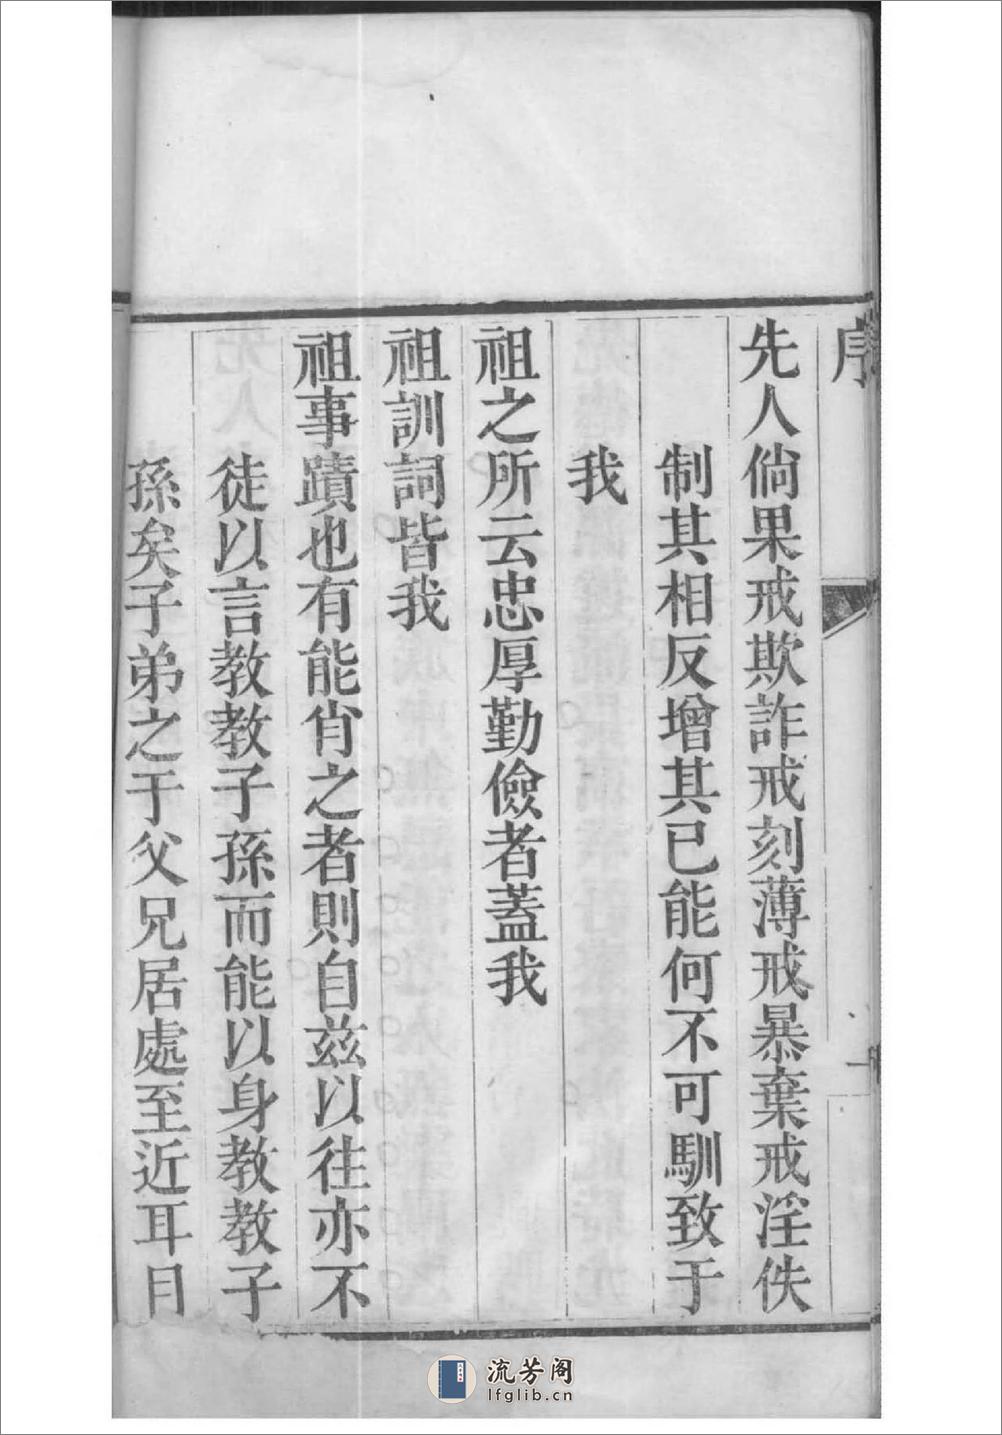 序
一
先人倘果戒欺詐戒刻薄戒暴棄戒淫佚
制其相反增其已能何不可馴致于
我
祖之所云忠厚勤儉者蓋我
祖訓詞皆我
祖事蹟也有能肖之者則自茲以往亦不
徒以言教教子孫而能以身教教子
孫矣子弟之于父兄居處至近耳目
流芳阁
lfglib.cn